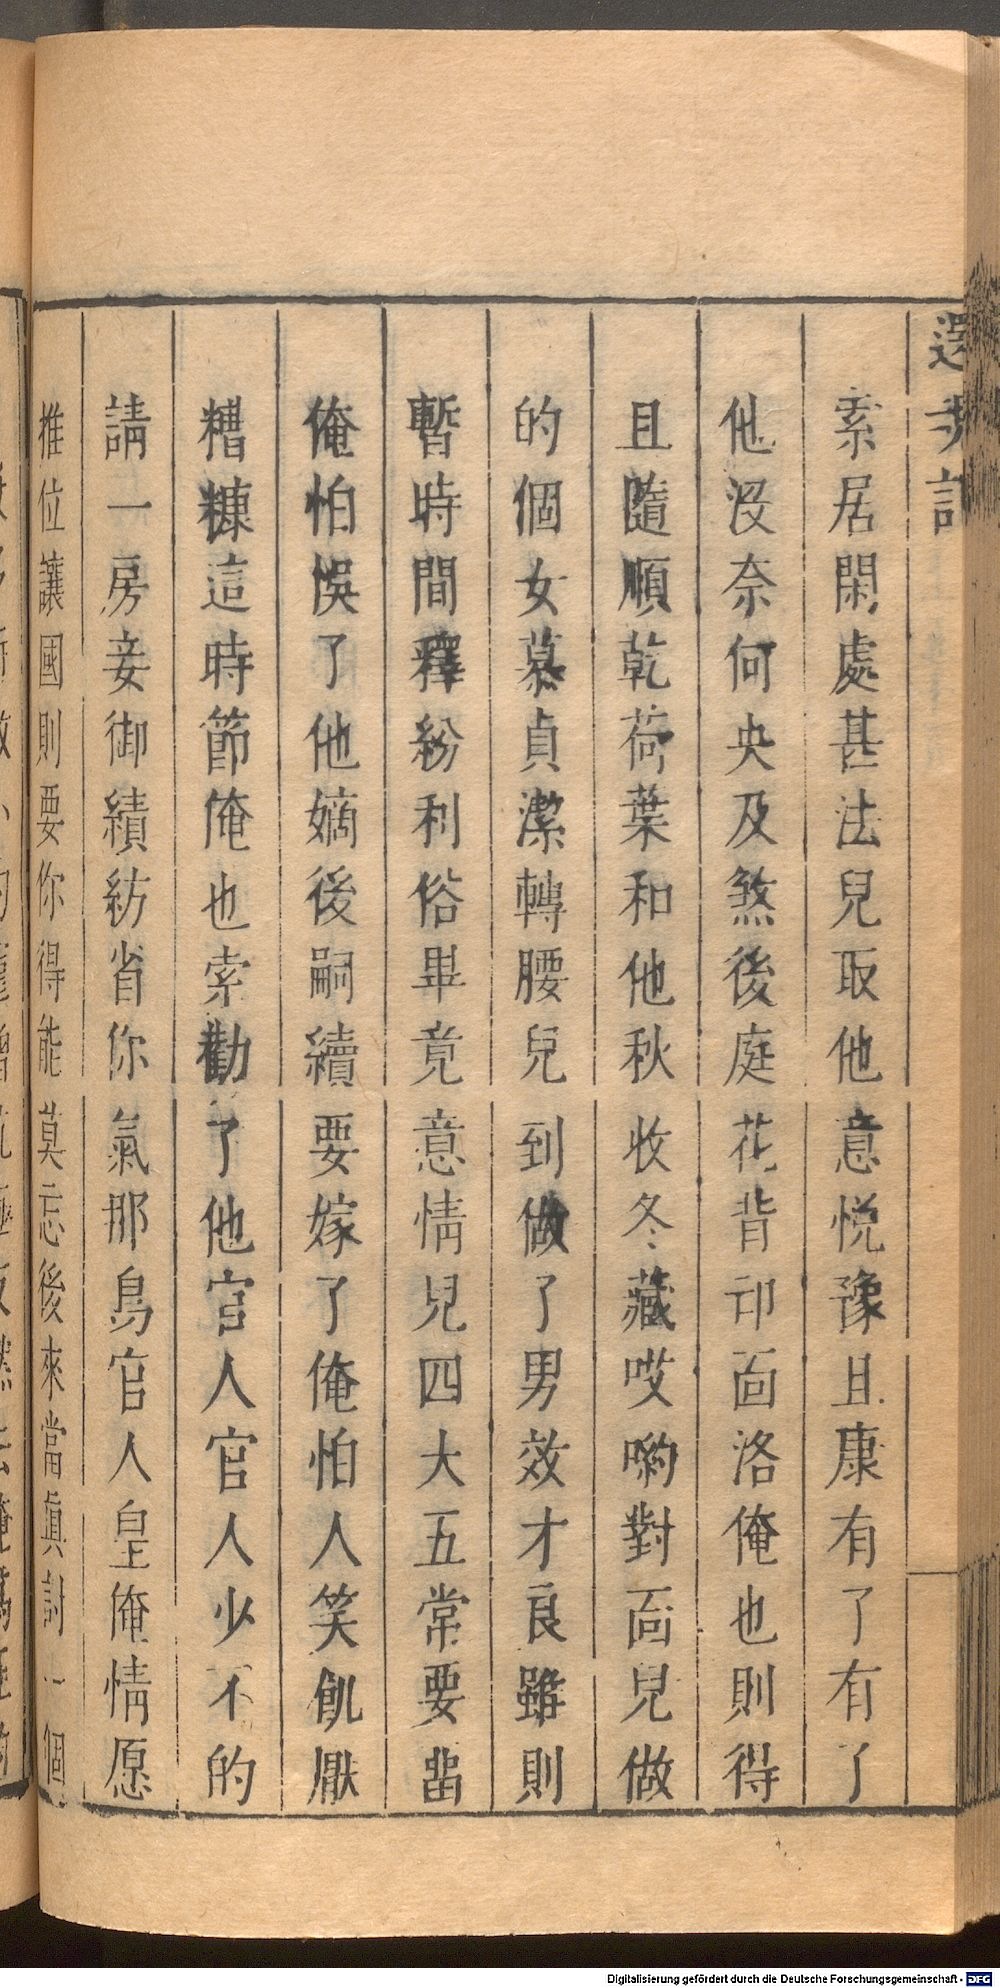 還魂記
索居閑處甚法兒取他意悦豫且康有了有了
他没奈何央及煞後庭花背卬靣洛俺也則得
且隨順乾荷葉和他秋收冬藏哎喲對靣兒做
的個女慕貞潔轉腰兒到做了男效才良雖則
暫時間釋紛利俗畢竟意情兒四大五常要畱
俺怕悞了他嫡後嗣續要嫁了俺怕人笑飢厭
糟糠這時節俺也索勸了他官人官人少不的
請一房妾御績紡省你氣那鳥官人皇俺情愿
推位讓國則要你得能莫忘後來當真討一個
Digitalisierung gefördert durch die Deutsche Forschungsgemeinschaft - DFG